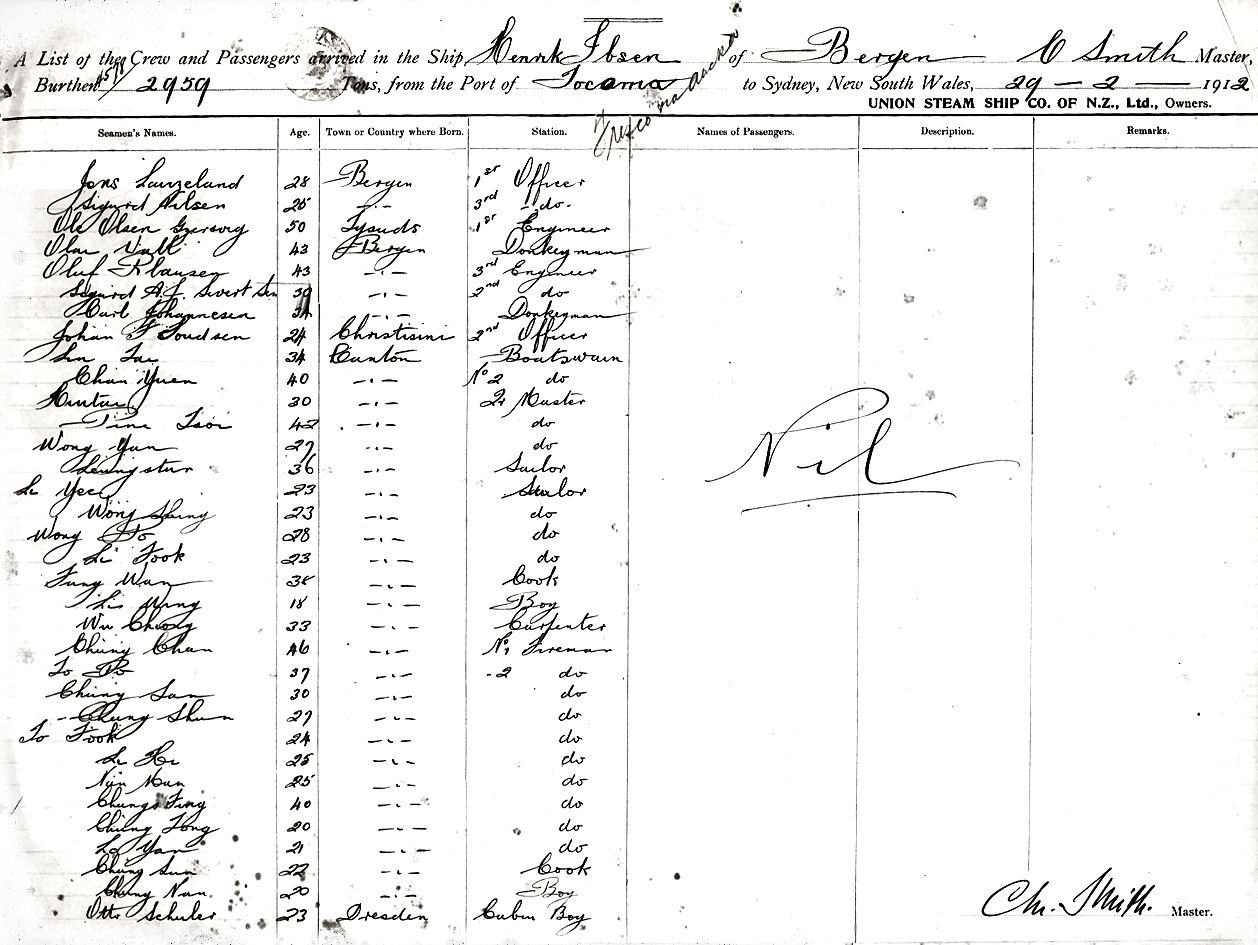 A List of the Crew and Passengers arrived in the Ship Henrik Ibsen of Bergen C Smith Master,
Burthen 2959 Tons, from the Port of Tocama to Sydney, New South Wales, 29 - 2 - 1912
UNION STEAM SHIP CO. OF N.Z., Ltd., Owners.
Seamen's Names. Age. Town or Country where Born. Station. Names of Passengers. Description. Remarks.
Jons 28 Bergen 1st Officer
Sigurd Nilsen 25 -"- 3rd - do -
Ole Olsen 50 1st Engineer
Olai Vall 43 Bergen Donkeyman
Oluf Klausen 43 -"- 3rd Engineer
Sigurd A.J. Sivertsen 39 -"- 2nd do
Carl Johannesen 34 -"- Donkeyman
Johan F 24 2nd Officer
34 Canton Boatswain
Chan Yuen 40 -"- No 2 do
30 -"- Qr Master
42 -"- do
Wong Yun 27 -"- do
36 -"- Sailor
Li Yee 23 -"- Sailor
Wong Shing 23 -"- do
Wong 28 -"- do
Li Fook 23 -"- do
Fung Wan 38 -"- Cook
Ming 18 -"- Boy
Wu Chong 33 -"- Carpenter
Chung Chan 46 -"- No 1 Fireman
To 37 -"- -2 do
Chung San 30 -"- do
Chung Shun 27 -"- do
To Fook 24 -"- do
Li Hi 25 -"- do
25 -"- do
Chung Fing 40 -"- do
Chung Tong 20 -"- do
Yan 21 -"- do
Chung Sun 22 -"- Cook
Chung Nan 20 -"- Boy
Otto Schuler 23 Dresden Cabin Boy
Nil
Chr. Smith. Master.